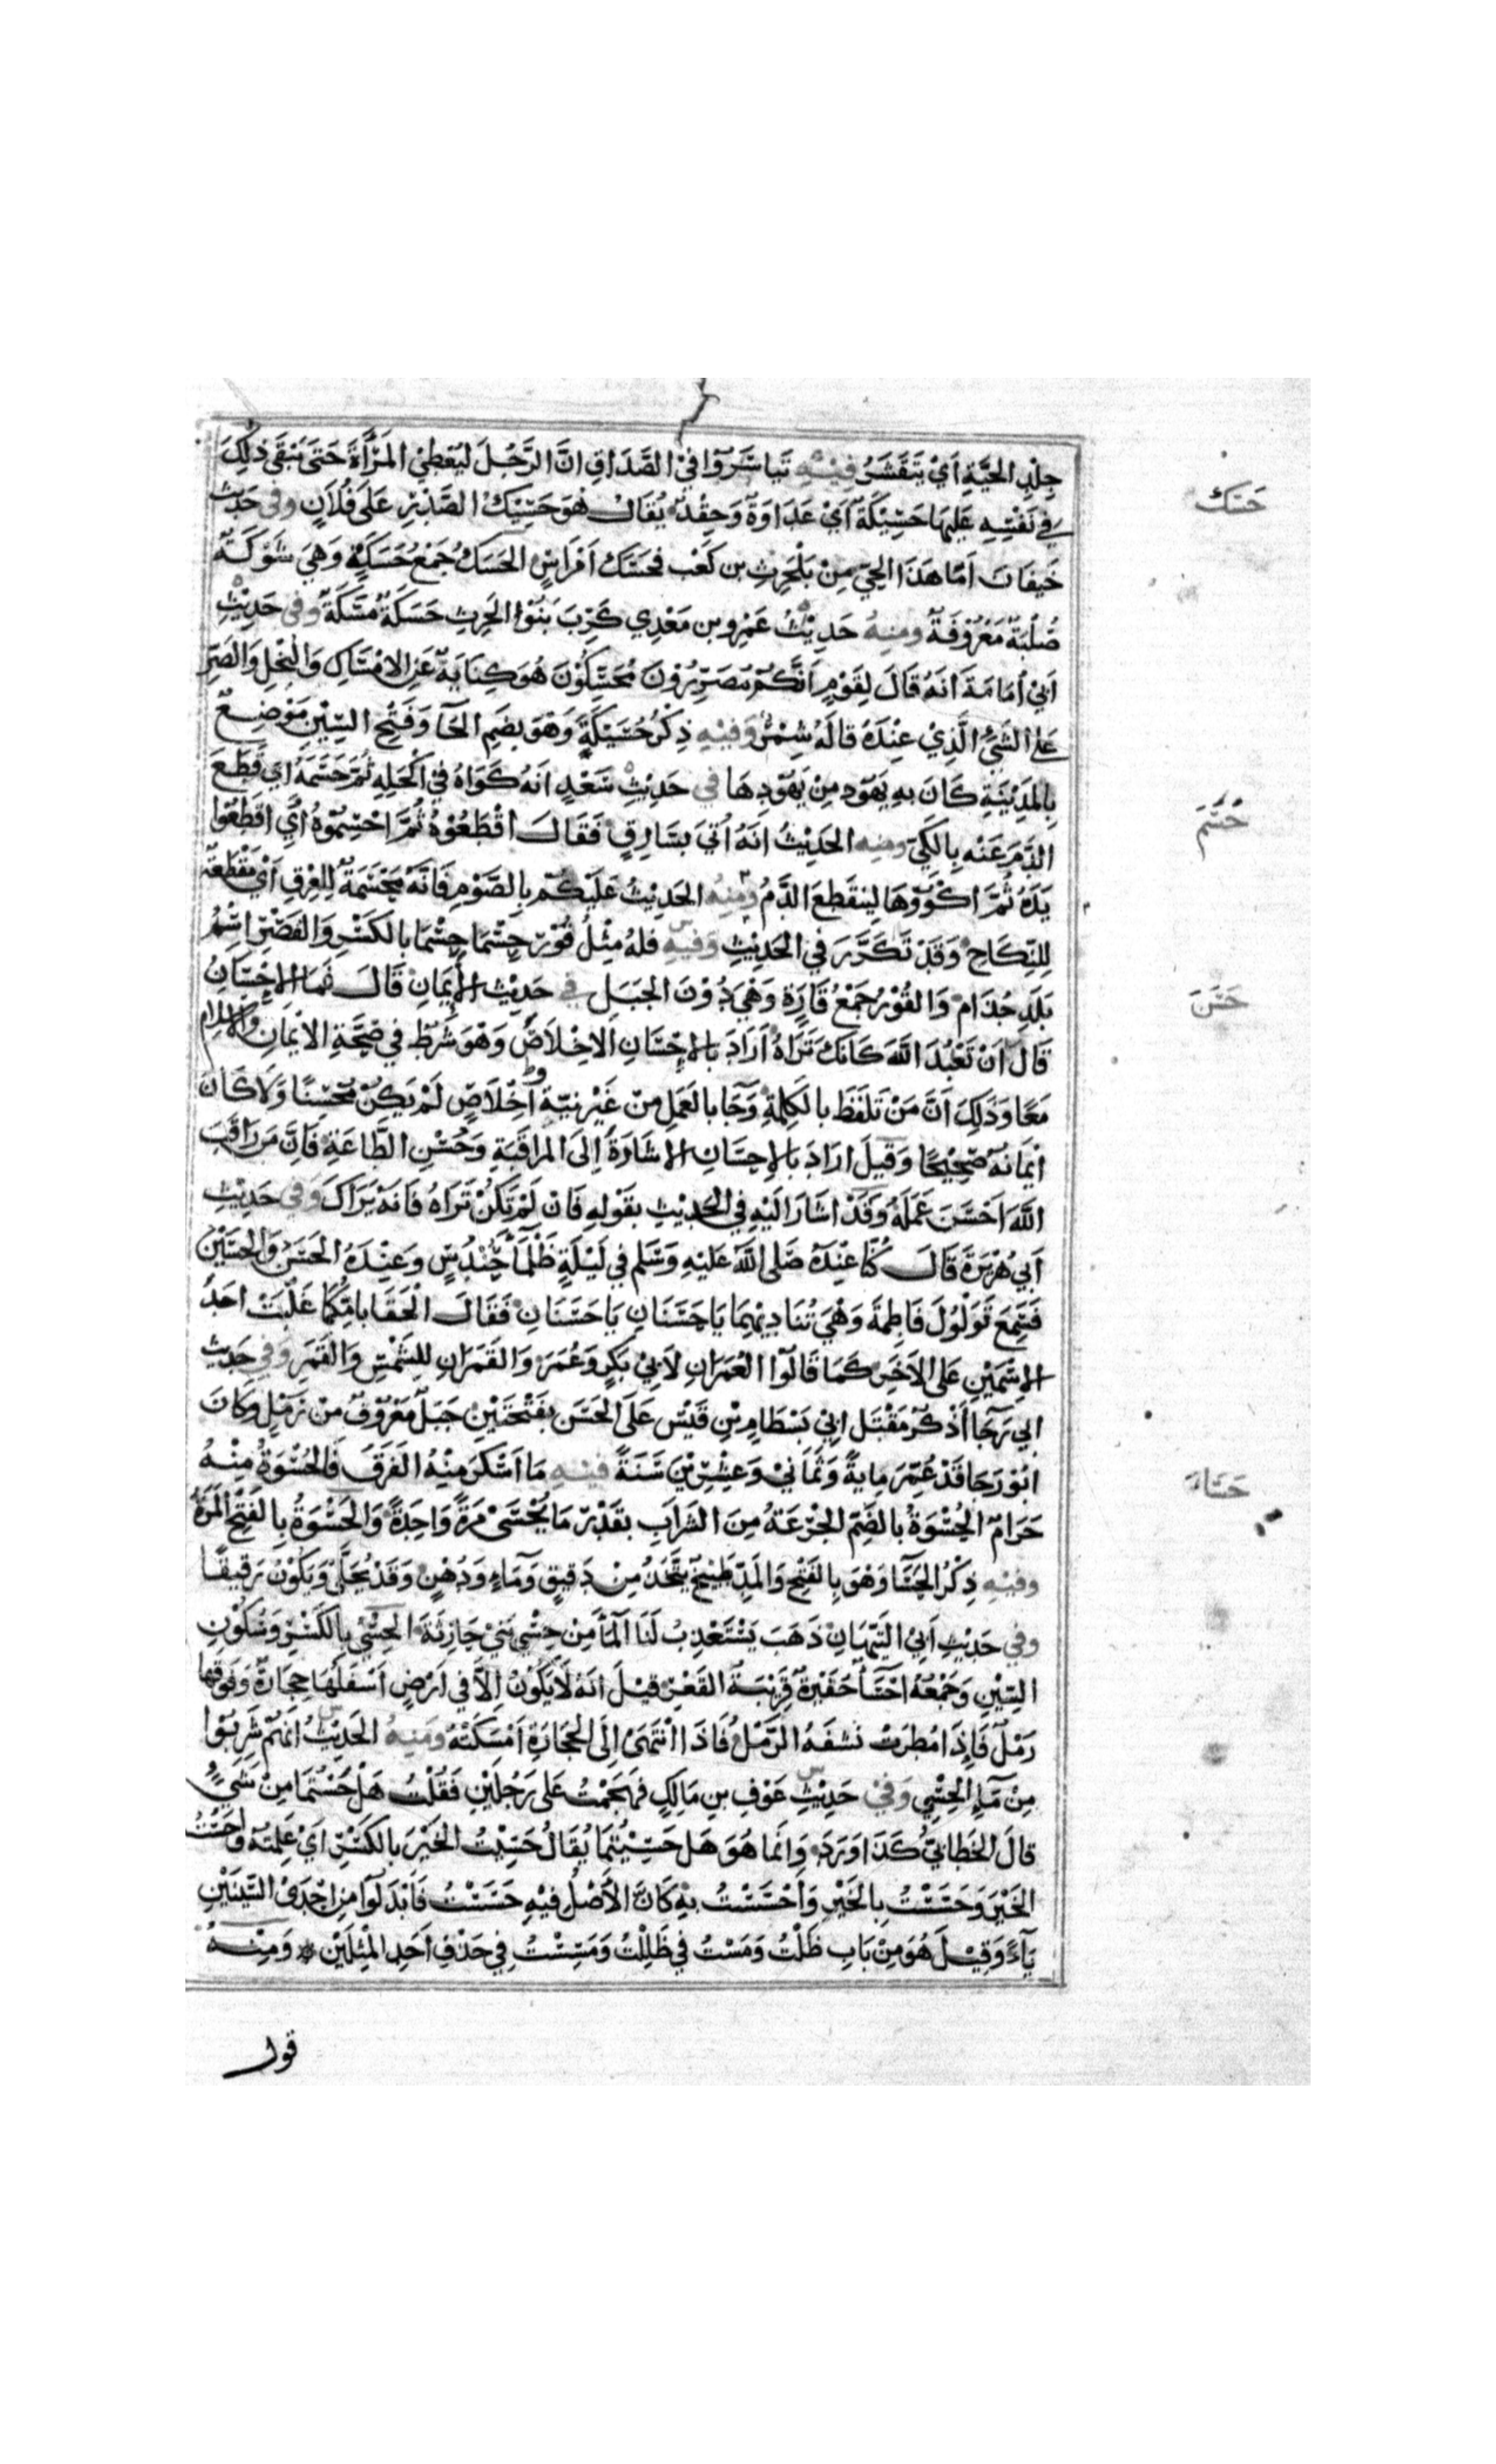 جِلْدِ الحَيَّةِ اَيْ يَتَقَشَرُ فِيْهِ تَيَاسَرُوا فِيْ الصَّدَاقِ اِنَّ الرَّجُلَ لَيُعْطِيْ المَرْأَةَ حَتَى يَبْقَى ذٰلِكَ
حَسَك
فِي نَفْسِهِ عَلَيهَا حَسِيْكَةً اَيْ عَدَاوَةً وَحِقْدً يُقَالُ هُوَ حَسِيْكُ الصَّدْرِ عَلَى فُلَانٍ وَفى حَدِيث
خَيفَان اَمَّا هَذَا الحَيّ مِنْ بَلْحَرِثِ بن كَعْب فحَسَك اَمْرَاسٍ الحَسَكُ جَمْعُ حَسَكَةٍ وَهِيَ شَوْكَةٌ
صُلْبَةٌ مَعْرُوْفَةٌ ومِنهُ حَدِيْثُ عَمِرِو بن مَعْدِي كَرِبَ بَنُوْا الحَرِثِ حَسَكَةٌ مَسَكَةٌ وفى حَدِيْثِ
اَبِيْ اُمَامَةَ اَنَهُ قَالَ لِقَوْمٍ اَنَّكُمْ مُصَرِّرُوْنَ مُحَسِّكُوْنَ هُوَ كِنَايَةٌ عَنِ الامْسَاكِ وَالبُخلِ وَالصَرِّ
عَلى الشَيْءِ الَّذِيْ عِنْدَهُ قالَهُ شِمْرٌ وَفِيْهِ ذِكْرُ حُسَيْكَةٍ وَهوَ بضَمِ الحَآ وَفَتْحِ السِيْنِ مَوْضِعٌ
بِالمَدِيْنَةِ كَانَ بهِ يَهُوْد مِنْ يَهُوْدِهَا فى حَدِيْثِ سَعْدٍ اَنَهُ كَوَاهُ فِيْ اَكْحَلِهِ ثُمَّ حَسَمَهُ اَيْ قَطَعَ
حَسَمَ
الدَّمَ عَنْه بِالكَيّ ومنه الحَدِيْثُ اَنَهُ اُتيَ بسَارِقٍ فَقَالَ اقْطَعُوْهُ ثُمَّ احْسِمُوْهُ أَيِ اقطَعُوْا
يَدَهُ ثُمَّ اكْوُوْهَا لِينقَطعَ الدَّمُ وَمِنهُ الحَدِيْثُ عَلَيْكُمْ بِالصَّوْمِ فَانَّهُ مَحْسَمَةٌ لِلْعِرْقِ اَيْ مَقْطَعَةٌ
لِلنِّكَاحِ وَقَدْ تَكَرَّرَ في الحَدِيْثِ وَفيهِ فلهُ مِثْلُ قُوْرِ حِسْمَا حِسْمَا بالكَسْرِ وَالقَصْرِ اسْمُ
بَلَدِ جُذَام وَالقُوْرُ جَمْعُ قَارَةٍ وَهْيَ دُوْنَ الجَبَل في حَدِيْث الإِيمَانِ قَالَ فَمَا الاِحْسَانُ
حَسَنَ
قَالَ اَنْ تَعْبُدَ اللّٰهَ كَانَكَ تَرَاهُ اَرَادَ بالاِحْسَانِ الاخْلَاصَ وَهْوَ شَرْطٌ في صِحَّةِ الايْمَانِ وَالاِسْلَام
مَعًا وَذَلِكَ اَنَّ مَنْ تَلَفَظَ بالكِلِمَةِ وَجَآ بالعَمَلِ مِنْ غَيْرِ نِيّة وَاخْلَاصٍ لَمْ يَكُنْ مُحْسِنًا وَلَا كَانَ
اِيمَانُهُ صَحِيْحًا وَقيلَ ارَادَ بَالاِحسَانِ الاِشَارَةَ اِلَى المُرَاقَبَةِ وَحُسْنِ الطَّاعَةِ فَاِنَّ مَن رَاقَبَ
اللّٰهَ اَحْسَنَ عَمَلَهُ وَقَدْ اشَارَ اليَهِ في الحَدِيْثِ بقَوْلهِ فَاِنْ لَمْ تَكُنْ تَرَاهُ فَانَهُ يَرَاكَ وَفى حَدِيْثِ
اَبِي هُرَيْرَةَ قَالَ كُنَّا عِنْدَهُ صَلى اللّٰهُ عَليْهِ وَسَلم في لَيْلَةٍ ظَلْمَآءَ حِنْدِسٍ وَعِنْدَهُ الحَسَنُ وَالحُسَيْنُ
فَسَمِعَ تَوَلْوُلَ فَاطِمَةَ وَهْيَ تُنَادِيْهِمَا يَا حَسَنَانِ يَا حَسَنَانِ فَقَالَ الْحَقَا بامّكُمَا غَلَّبَتْ اَحَدَ
الاِسْمَيْنِ عَلى الاَخَرِ كَمَا قَالُوْا العُمَرَانِ لاَبِيْ بَكْرٍ وَعُمَرَ وَالقَمَرَانِ لِلشَمْسِ وَالقَمَرِ وَفي حَدِيث
ابي رَجَا اَذْكُرُ مَقْتَل ابِيْ بَسْطَامِ بْنِ قَيْسٍ عَلَى الحَسَن بفَتْحَتَيْنِ جَبَلٌ مَعْرُوْفٌ مِنْ رَمْلٍ وَكَانَ
ابُوْ رَجَا قَدْ عُمِّرَ مِايَةً وَثَمَانِيْ وَعِشْرِيْنَ سَنَةً فِيْهِ مَا اَسْكَرَ مِنْهُ الفَرَقَ فَالحُسْوَةُ مِنْهُ
حَسَاءَ
حَرَامٌ الحُسْوَةُ بالضَمّ الجُرْعَةُ مِنَ الشَرَابِ بقَدْرِ مَا يُحْسَى مَرَةً وَاحِدَةً وَالحَسْوَةُ بِالفَتْحِ المَرَةُ
وفيْهِ ذِكْرُ الحَسَا وَهْوَ بِالفَتْحِ وَالمَدّ طَبِيْخٌ يُتَّخَذُ مِنْ دَقِيْقٍ وَمَآءٍ وَدُهْنٍ وَقَدْ يُحَلَّى وَيَكُوْنُ رَقِيقًا
وفي حَدِيْثِ اَبِيْ التَيّهَانِ ذَهَبَ يَسْتَعْذِبُ لَنَا المَآءَ مِنْ حِسْيِ بَنِيْ حَارِثَةَ الحِسْيُ بِالكَسْرِ وَسُكُوْنِ
السِيْنِ وَجَمْعُهُ احْسَآءٌ حَفيْرَةٌ قَرِيْبَةُ القَعْرِ قيْلَ انَهُ لَا يَكُوْنُ اِلَّا في اَرْضٍ اَسْفَلُهَا حِجَارَةٌ وَفَوْقَهَا
رَمْلٌ فَاِذَا مُطِرَت نَشفَهُ الرَمْلُ فَاذَا انْتَهَىْ اِلَى الحِجَارَةِ اَمْسَكَتْهُ وَمِنهُ الحَدِيْثُ انَهُمْ شَرِبُوْا
مِنْ مَآءِ الحِسْيِ وَفيْ حَدِيْثِ عَوْفِ بنِ مَالِكٍ فَهَجَمْتُ عَلى رَجُلَيْنِ فَقُلْتُ هَلْ حَسْتُمَا مِنْ شَيْءٍ
قالَ الخَطابيُّ كَذَا وَرَدَ وَانَما هُوَ هَل حَسِيْتُمَا يُقَالُ حَسِيْتُ الخَبَرَ بِالكَسْرِ اَيْ عَلِمتهُ وَاَحَسْتُ
الخَبَرَ وَحَسَسْتُ بِالخَبَرِ وَاَحْسَسْتُ بهِ كَانَّ الاَصْلُ فيْهِ حَسَسْتُ فَاَبْدَلُوْا مِنْ اِحْدَىْ السّيْنَيْنِ
يَآءً وَقِيْلَ هُوَ مِنْ بَابِ ظَلْتُ وَمَسْتُ في ظَلِلْتُ وَمَسِسْتُ فِي حَذْفِ اَحَدِ المِثْلَيْن وَمِنْهُ
قول